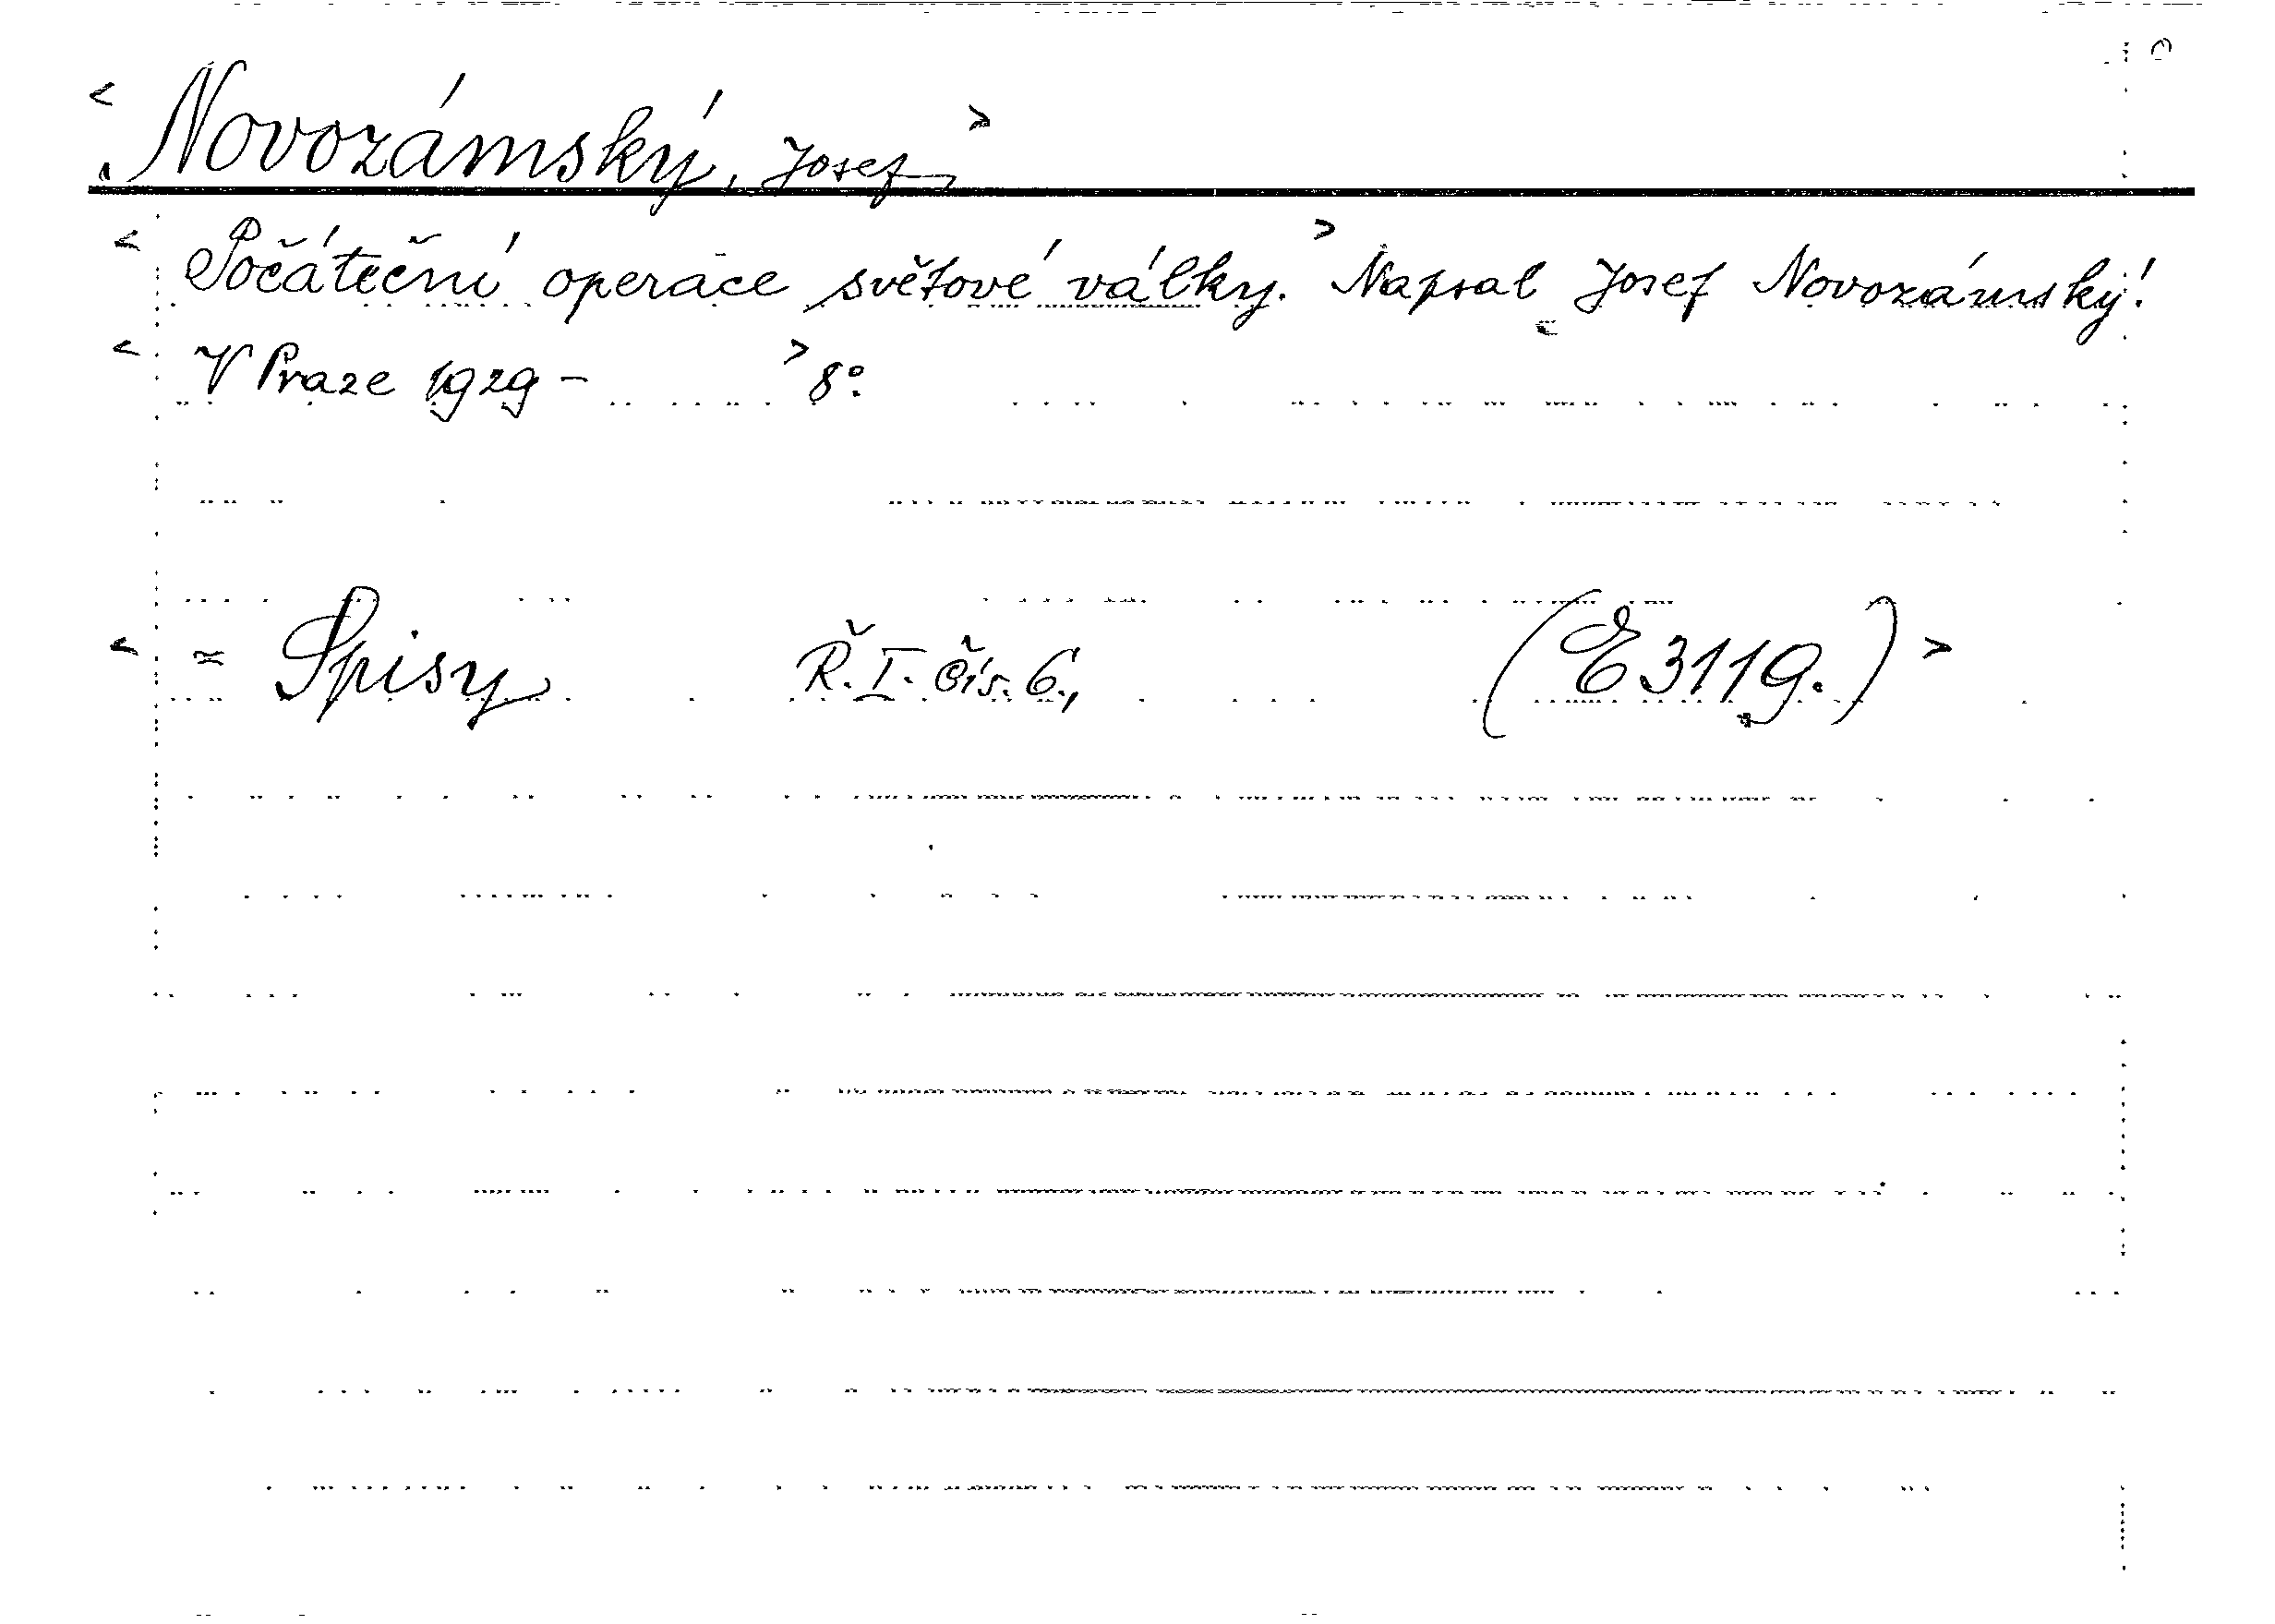 < Novozámský, Josef >
< Počáteční operace světové války. > Napsal Josef Novozámský.
< V Praze 1929 - > 8°.
< = Spisy Ř. I. čís. 6., (E 3119.) >